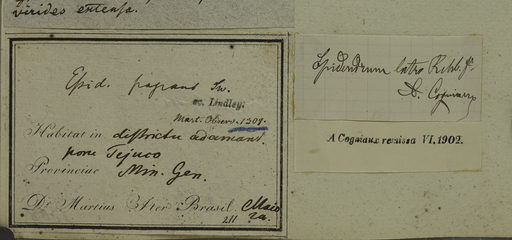 virides extensa.
Epid. fragrans Sw.
sec. Lindley.
Mart. Observ. 1309.
Habitat in districtu adamant.
pone Tejuco
Provinciae Min. Gen.
Dr Martius Iter Brasil. Maio
Epidendrum latro Rchb. f.
A. Cogniaux
A Cogniaux remissa VI, 1902.